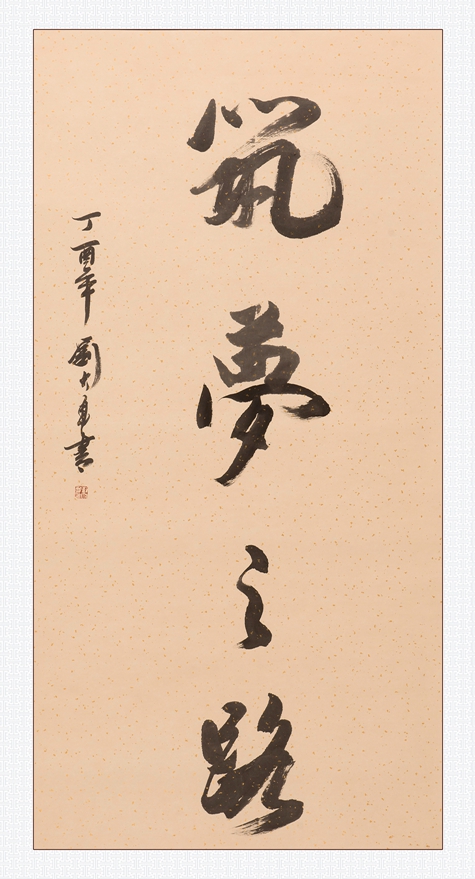 筑夢之路
丁酉年 劉大年書